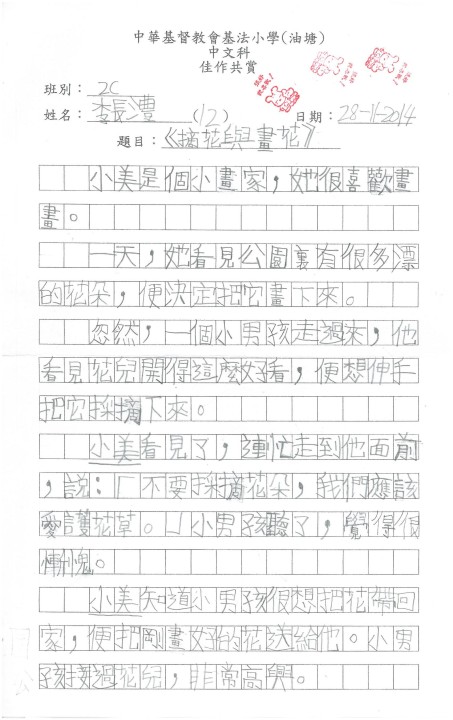 中華基督教會基法小學(油塘)
中文科
佳作共賞
班別： 2C
姓名： 李長澧 (12) 日期：28-11-2014
題目：《摘花與畫花》
小美是個小畫家，她很喜歡畫
畫。
一天，她看見公園裏有很多漂
的花朵，便決定把它畫下來。
忽然，一個小男孩走過來，他
看見花兒開得這麼好看，便想伸手
把它採摘下來。
小美看見了，連忙走到他面前
，說：「不要採摘花朵，我們應該
愛護花草。」小男孩聽了，覺得很
慚愧。
小美知道小男孩很想把花帶回
家，便把剛畫好的花送給他。小男
孩接過花兒，非常高興。